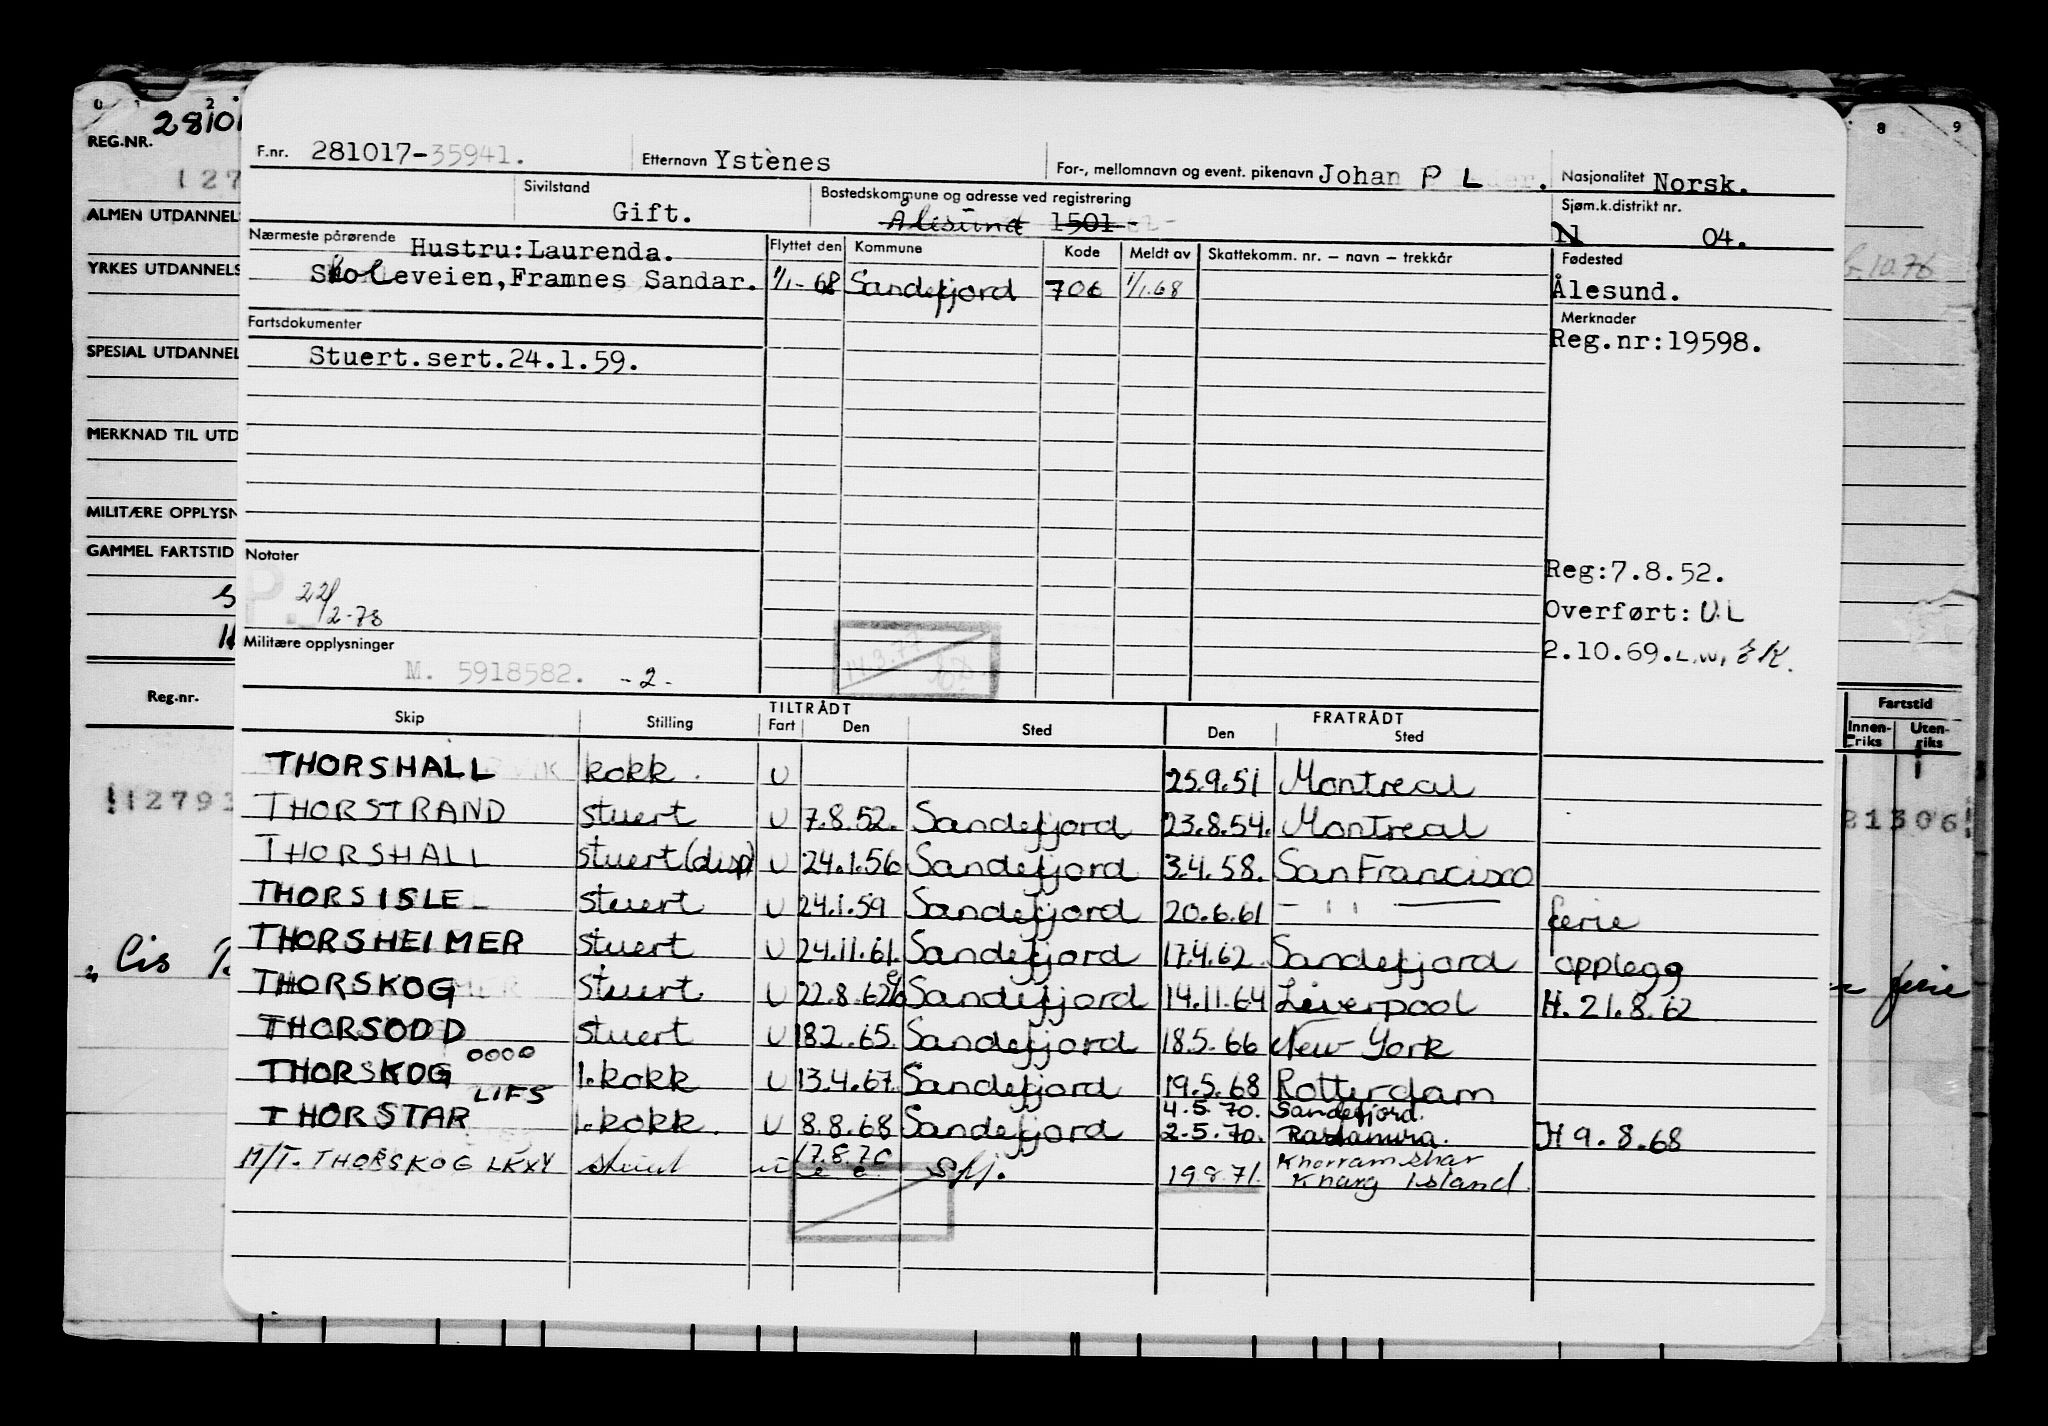 0 2 8 9
REG.NR. 28101
127
ALMEN UTDANNEL
YRKES UTDANNELS
SPESIAL UTDANNEL
MERKNAD TIL UTD
MILITÆRE OPPLYSN
GAMMEL FARTSTID
Reg.nr.
F.nr. 281017-35941. Etternavn Ystènes For-, mellomnavn og event. pikenavn Johan P L Nasjonalitet Norsk.
Sivilstand Gift. Bostedskommune og adresse ved registrering Ålesund 1501 Sjøm.k.distrikt nr. N 04.
Nærmeste pårørende Hustru:Laurenda. Flyttet den Kommune Kode Meldt av Skattekomm. nr. – navn – trekkår Fødested
Skoleveien,Framnes Sandar. 1/1-68 Sandefjord 706 1/1.68 Ålesund.
Fartsdokumenter Merknader
Stuert.sert.24.1.59. Reg.nr:19598.
Notater Reg:7.8.52.
22/2-78 Overført: U.L
Militære opplysninger 2.10.69. L.W, EK.
M. 5918582. -2- 14.3.77
TILTRÅDT FRATRÅDT Fartstid
Skip Stilling Fart Den Sted Den Sted Innenriks Utenriks
THORSHALL kokk. U 25.9.51 Montreal
THORSTRAND stuert U 7.8.52. Sandefjord 23.8.54. Montreal
THORSHALL stuert(disp) U 24.1.56 Sandefjord 3.4.58. San Francisco
THORSISLE stuert U 24.1.59 Sandefjord 20.6.61 - " - ferie
THORSHEIMER stuert U 24.11.61. Sandefjord 17.4.62 Sandefjord opplegg
THORSKOG stuert. U 22.8.62 Sandefjord 14.11.64 Liverpool H. 21.8.62
THORSODD stuert U 18.2.65. Sandefjord 18.5.66 New York
THORSKOG OOOO 1.kokk U 13.4.67. Sandefjord 19.5.68 Rotterdam
THORSTAR LIFS 1.kokk. U 8.8.68 Sandefjord 4.5.70. Sandefjord. 2.5.70. Rastanura. H 9.8.68
M/T. THORSKOG LKXV stuert u 17.8.70 Sfj. 19.8.71. Khorramshar Kharg Island
112793
21306
"Cis
ferie